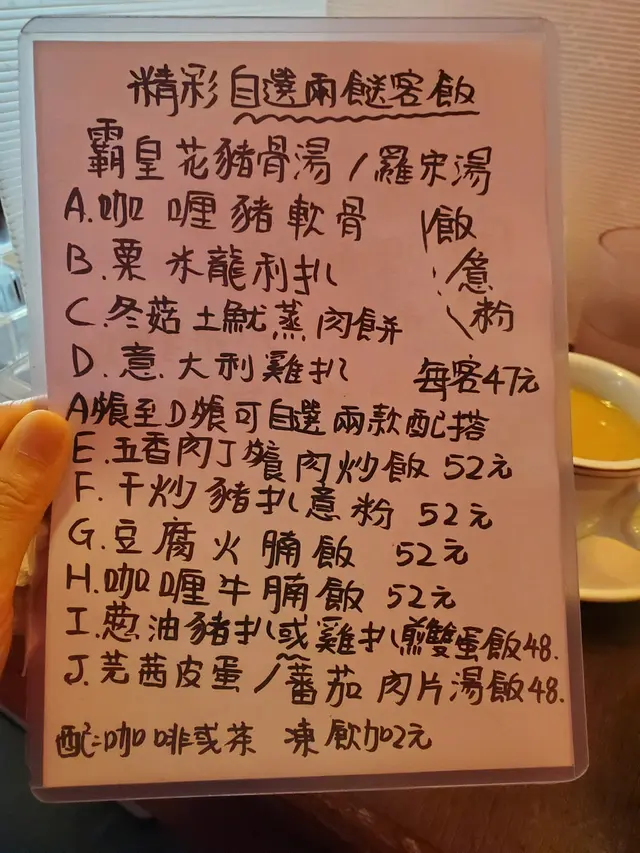 精彩自選兩餸客飯
霸皇花豬骨湯/羅宋湯
A.咖喱豬軟骨
B.粟米龍利扒
C.冬菇土魷蒸肉餅
D.意大利雞扒
飯
意
粉
每客47元
A餐至D餐可自選兩款配搭
E.五香肉丁餐肉炒飯 52元
F.干炒豬扒意粉 52元
G.豆腐火腩飯 52元
H.咖喱牛腩飯 52元
I.葱油豬扒或雞扒煎雙蛋飯48.
J.芫茜皮蛋/蕃茄肉片湯飯48.
配:咖啡或茶 凍飲加2元